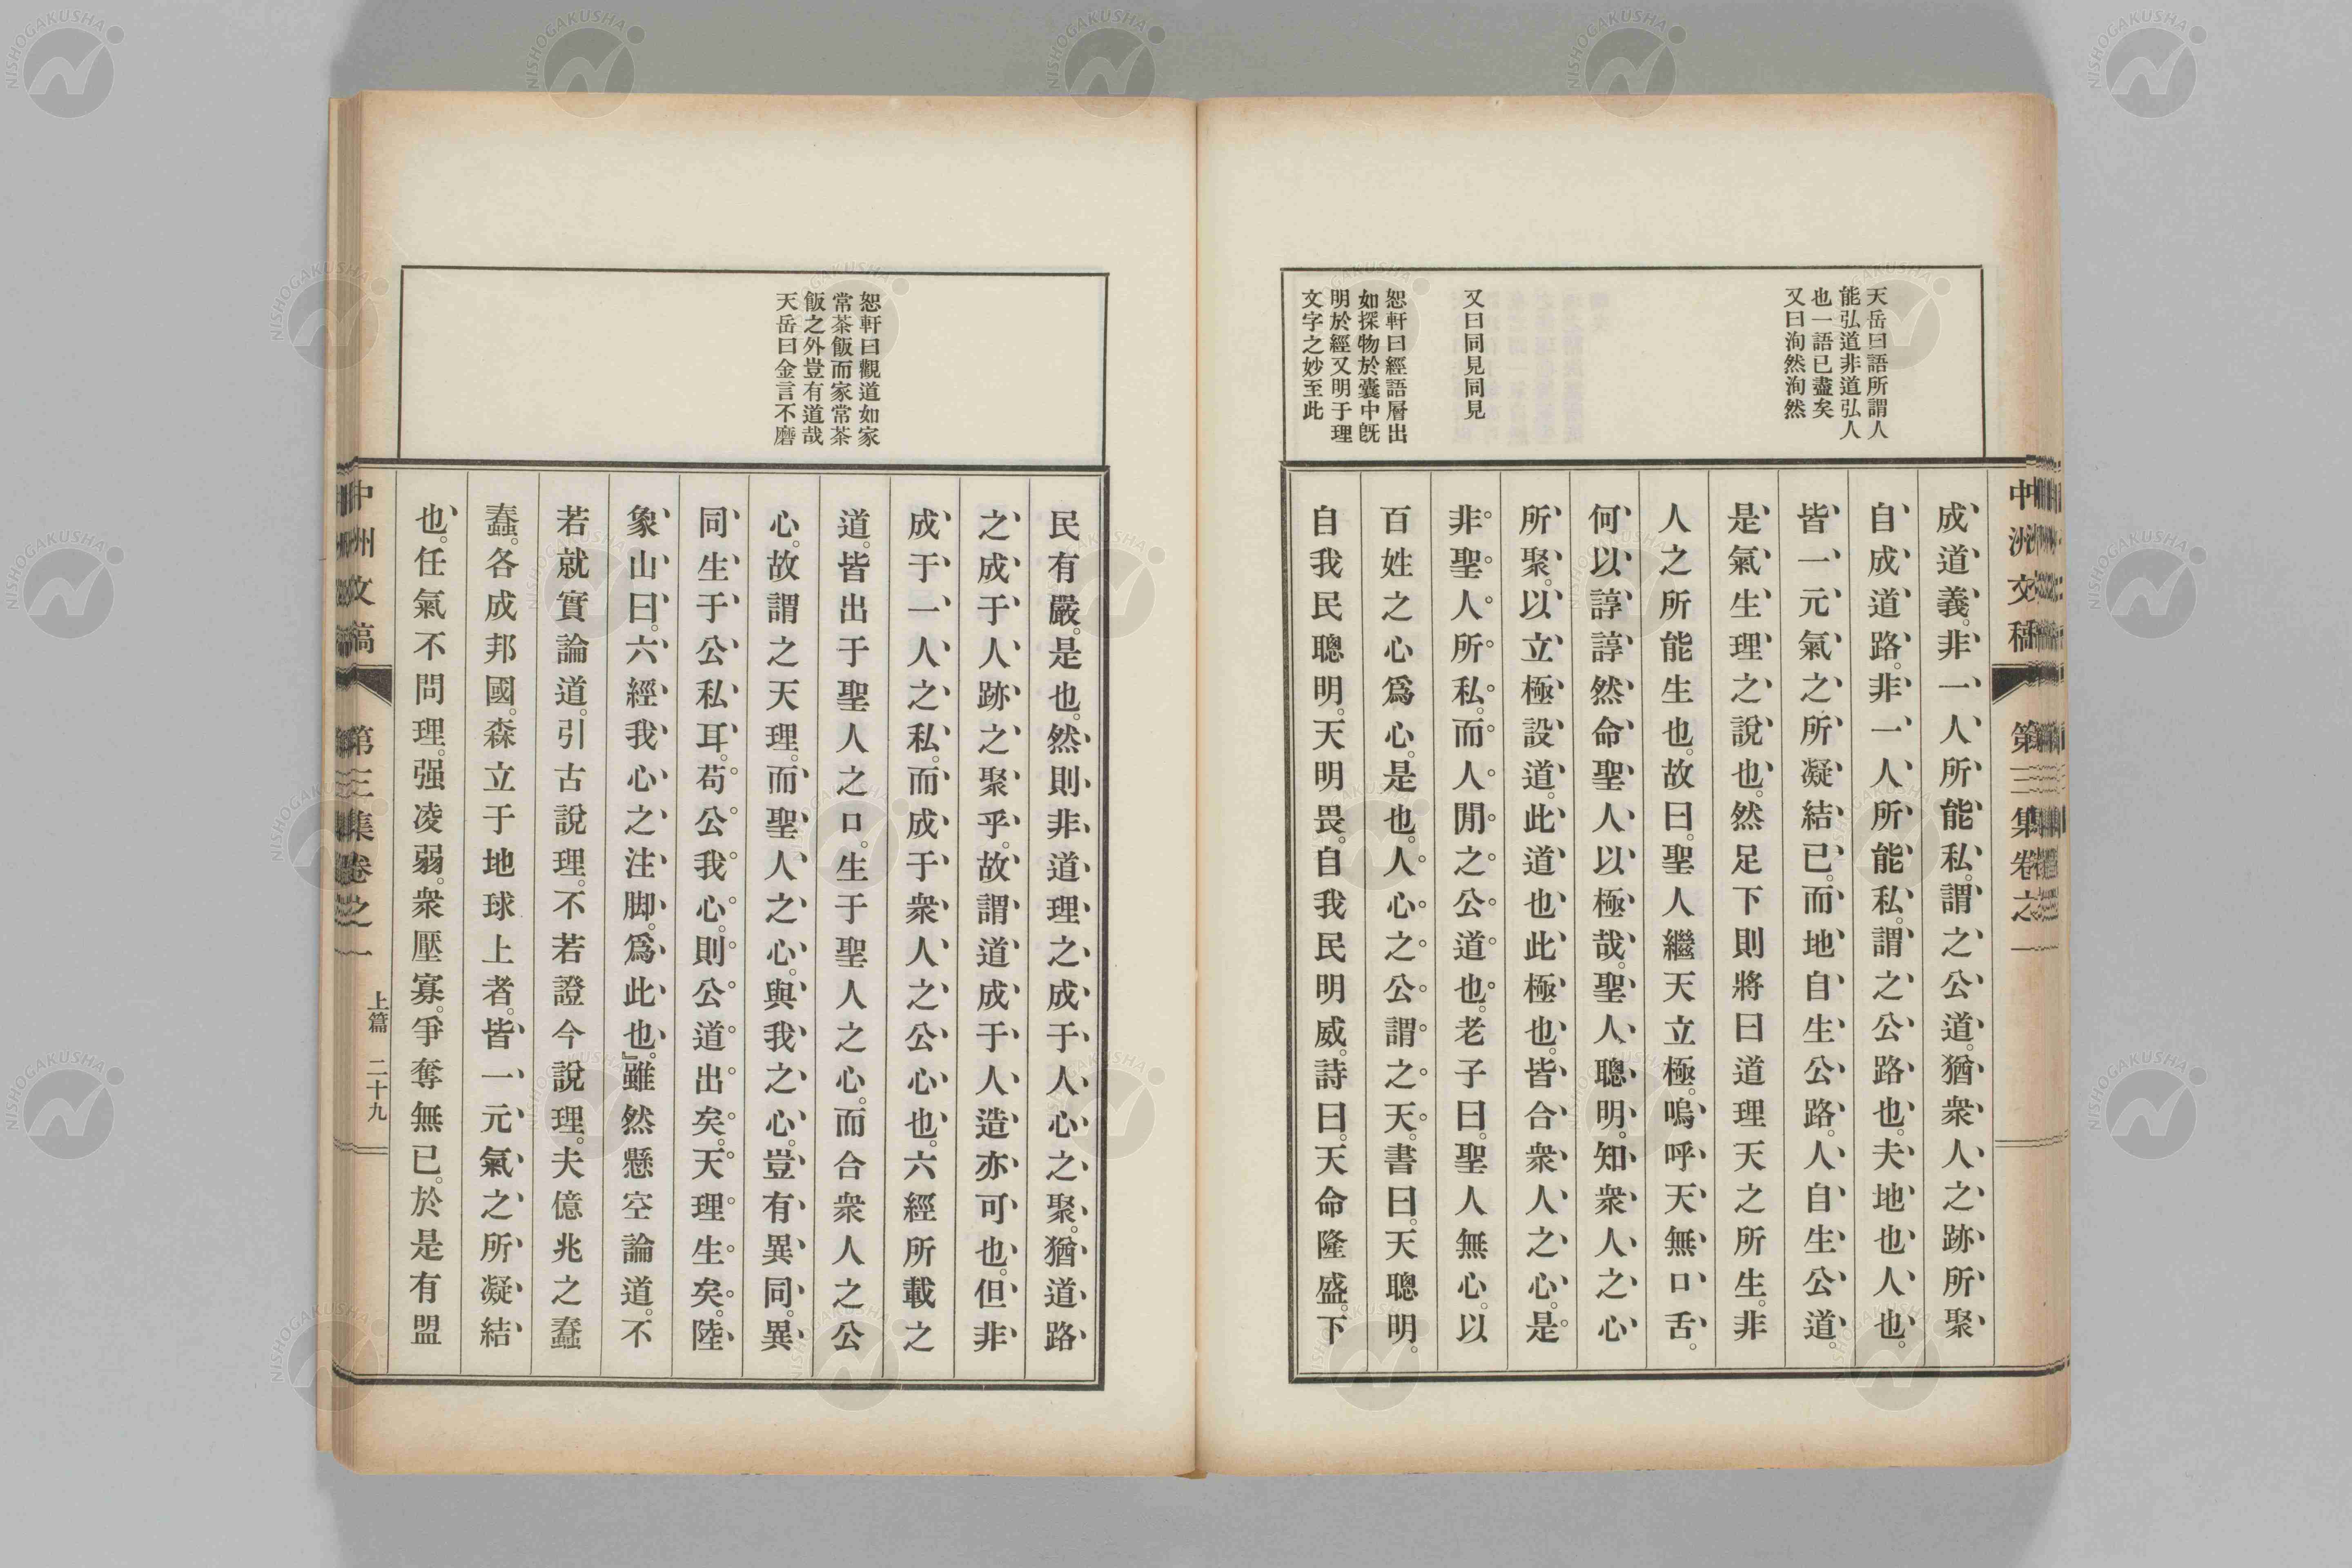 中洲文稿 第三集卷之一
天岳曰語所謂人
能弘道非道弘人
也一語已盡矣
又曰洵然洵然
又曰同見同見
恕軒曰經語層出
如探物於囊中旣
明於經又明于理
文字之妙至此
成道義。非一人所能私。謂之公道。猶衆人之跡所聚
自成道路。非一人所能私。謂之公路也。夫地也人也。
皆一元氣之所凝結已。而地自生公路。人自生公道。
是氣生理之說也。然足下則將曰道理天之所生。非
人之所能生也。故曰聖人繼天立極。嗚呼天無口舌。
何以諄諄然命聖人以極哉。聖人聰明。知衆人之心
所聚。以立極設道。此道也此極也。皆合衆人之心。是
非聖人所私。而人閒之公道也。老子曰。聖人無心。以
百姓之心爲心。是也。人心之公。謂之天。書曰。天聰明。
自我民聰明。天明畏。自我民明威。詩曰。天命隆盛。下
恕軒曰觀道如家
常茶飯而家常茶
飯之外豈有道哉
天岳曰金言不磨
民有嚴。是也。然則非道理之成于人心之聚。猶道路
之成于人跡之聚乎。故謂道成于人造亦可也。但非
成于一人之私。而成于衆人之公心也。六經所載之
道。皆出于聖人之口。生于聖人之心。而合衆人之公
心。故謂之天理。而聖人之心。與我之心。豈有異同。異
同生于公私耳。苟公我心。則公道出矣。天理生矣。陸
象山曰。六經我心之注脚。爲此也。』雖然懸空論道。不
若就實論道。引古說理。不若證今說理。夫億兆之蠢
蠢。各成邦國。森立于地球上者。皆一元氣之所凝結
也。任氣不問理。强凌弱。衆壓寡。爭奪無已。於是有盟
中州文稿 第三集卷之一 上篇 二十九